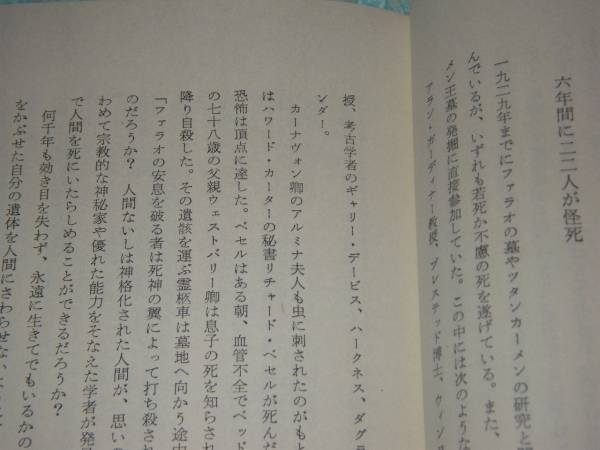 六年間に二二人が怪死
一九二九年までにファラオの墓やツタンカーメンの研究と
んでいるが、いずれも若死か不慮の死を遂げている。また、
メン王墓の発掘に直接参加していた。この中には次のような
アラン・ガーディナー教授、ブレステッド博士、ウィン
授、考古学者のギャリー・デービス、ハークネス、ダグラ
ンダー。
カーナヴォン卿のアルミナ夫人も虫に刺されたのがもと
はハワード・カーターの秘書リチャード・ベセルが死んだ
恐怖は頂点に達した。ベセルはある朝、血管不全でベッド
の七十八歳の父親ウェストバリー卿は息子の死を知らされ
降り自殺した。その遺骸を運ぶ霊柩車は墓地へ向かう途中
「ファラオの安息を破る者は死神の翼によって打ち殺され
のだろうか? 人間ないしは神格化された人間が、思いの
わめて宗教的な神秘家や優れた能力をそなえた学者が発
で人間を死にいたらしめることができるだろうか?
何千年も効き目を失わず、永遠に生きてでもいるかの
をかぶせた自分の遺体を人間にさわらせない